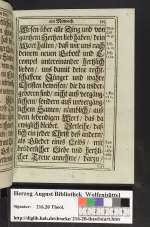 am Mittwoch.
Wesen über alle Ding und von
gantzem Hertzen lieb haben / dein
Wort halten / daß wir uns nach
deinem neuen Gebott und E-
xempel untereinander hertzlich
lieben / uns damit deine recht-
schaffene Jünger und wahre
Christen beweisen / die da wider-
geboren sind / nicht auß vergäng-
lichem / sondern auß unvergäng-
lichem Samen / nämblich / auß
dem lebendigen Wort / das da
ewiglich bleibet. Verleihe /
ein jeder Christ deß andern /
als Glieder eines Leibs / mit
brüderlicher Liebe und hertzli-
cher Treue annehme / darzu
Herzog August Bibliothek Wolfenbüttel
Signatur: 216.20 Theol.
http://diglib.hab.de/drucke/216-20-theol/start.htm